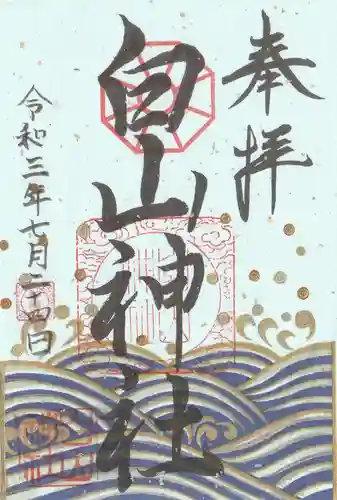 奉拝
白山神社
令和三年七月二十四日